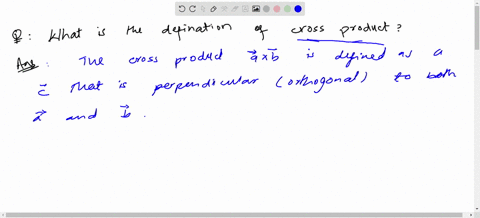 Q: What is the defination of cross product?
Ans: The cross product a⃗ x b⃗ is defined as a
c⃗ that is perpendicular (orthogonal) to both
a⃗ and b⃗.